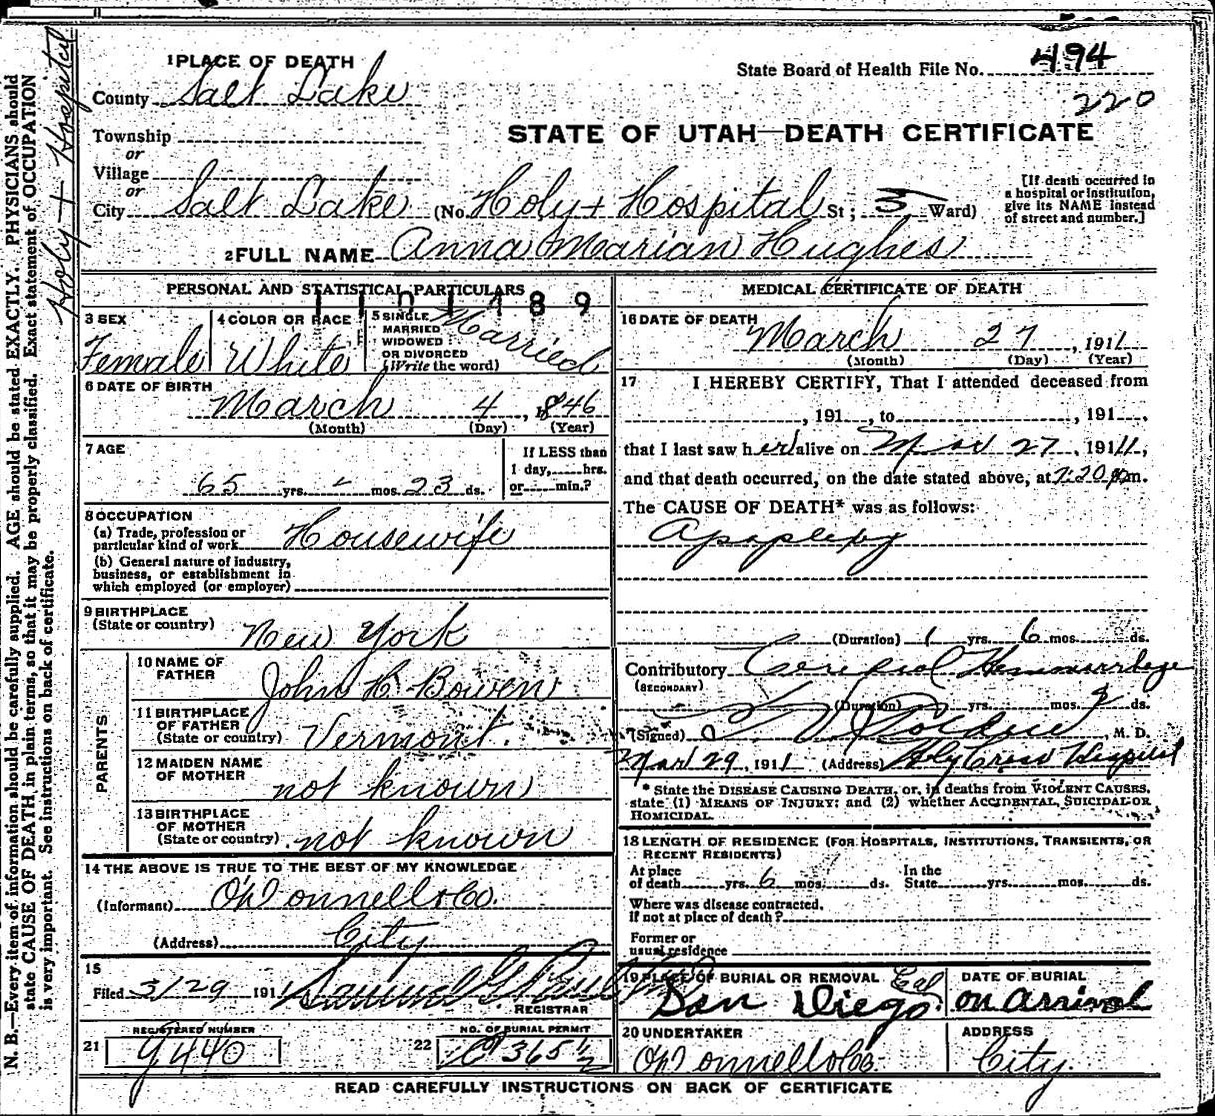 N. B.—Every item of information should be carefully supplied. AGE should be stated EXACTLY. PHYSICIANS should
state CAUSE OF DEATH in plain terms, so that it may be properly classified. Exact statement of OCCUPATION
is very important. See instructions on back of certificate.
Holy + Hospital
1 PLACE OF DEATH
State Board of Health File No. 494
County Salt Lake
220
Township
STATE OF UTAH—DEATH CERTIFICATE
or
Village
or
City Salt Lake (No. Holy + Hospital St; 5 Ward)
[If death occurred in
a hospital or institution,
give its NAME instead
of street and number.]
2 FULL NAME Anna Marian Hughes
PERSONAL AND STATISTICAL PARTICULARS
3 SEX
Female
4 COLOR OR RACE
White
5 SINGLE
MARRIED
WIDOWED
OR DIVORCED
(Write the word)
Married
6 DATE OF BIRTH
March 4, 1846
(Month) (Day) (Year)
7 AGE
65 yrs. - mos. 23 ds.
If LESS than
1 day, hrs.
or min.?
8 OCCUPATION
(a) Trade, profession or
particular kind of work Housewife
(b) General nature of industry,
business, or establishment in
which employed (or employer)
9 BIRTHPLACE
(State or country) New York
PARENTS
10 NAME OF
FATHER John H. Bowen
11 BIRTHPLACE
OF FATHER
(State or country) Vermont.
12 MAIDEN NAME
OF MOTHER not known
13 BIRTHPLACE
OF MOTHER
(State or country) not known
14 THE ABOVE IS TRUE TO THE BEST OF MY KNOWLEDGE
(Informant) O'Donnell & Co.
(Address) City
15
Filed 3/29 191 Samuel G.
REGISTRAR
REGISTERED NUMBER
21 9440
NO. OF BURIAL PERMIT
22 365 1/2
MEDICAL CERTIFICATE OF DEATH
16 DATE OF DEATH
March 27, 1911
(Month) (Day) (Year)
17 I HEREBY CERTIFY, That I attended deceased from
, 191 , to , 191 ,
that I last saw her alive on Mar 27, 1911,
and that death occurred, on the date stated above, at 7:20 pm.
The CAUSE OF DEATH* was as follows:
Apoplexy
(Duration) 1 yrs. 6 mos. ds.
Contributory Cerebral Hemmorrhage
(SECONDARY)
(Duration) yrs. mos. 2 ds.
(Signed) M. D.
Mar 29, 1911 (Address) Holy Cross Hospital
* State the DISEASE CAUSING DEATH, or, in deaths from VIOLENT CAUSES,
state (1) MEANS OF INJURY; and (2) whether ACCIDENTAL, SUICIDAL OR
HOMICIDAL.
18 LENGTH OF RESIDENCE (FOR HOSPITALS, INSTITUTIONS, TRANSIENTS, OR
RECENT RESIDENTS)
At place
of death yrs. 6 mos. ds.
In the
State yrs. mos. ds.
Where was disease contracted,
If not at place of death?
Former or
usual residence
19 PLACE OF BURIAL OR REMOVAL
San Diego Cal
DATE OF BURIAL
on arrival
20 UNDERTAKER
O'Donnell & Co.
ADDRESS
City.
READ CAREFULLY INSTRUCTIONS ON BACK OF CERTIFICATE